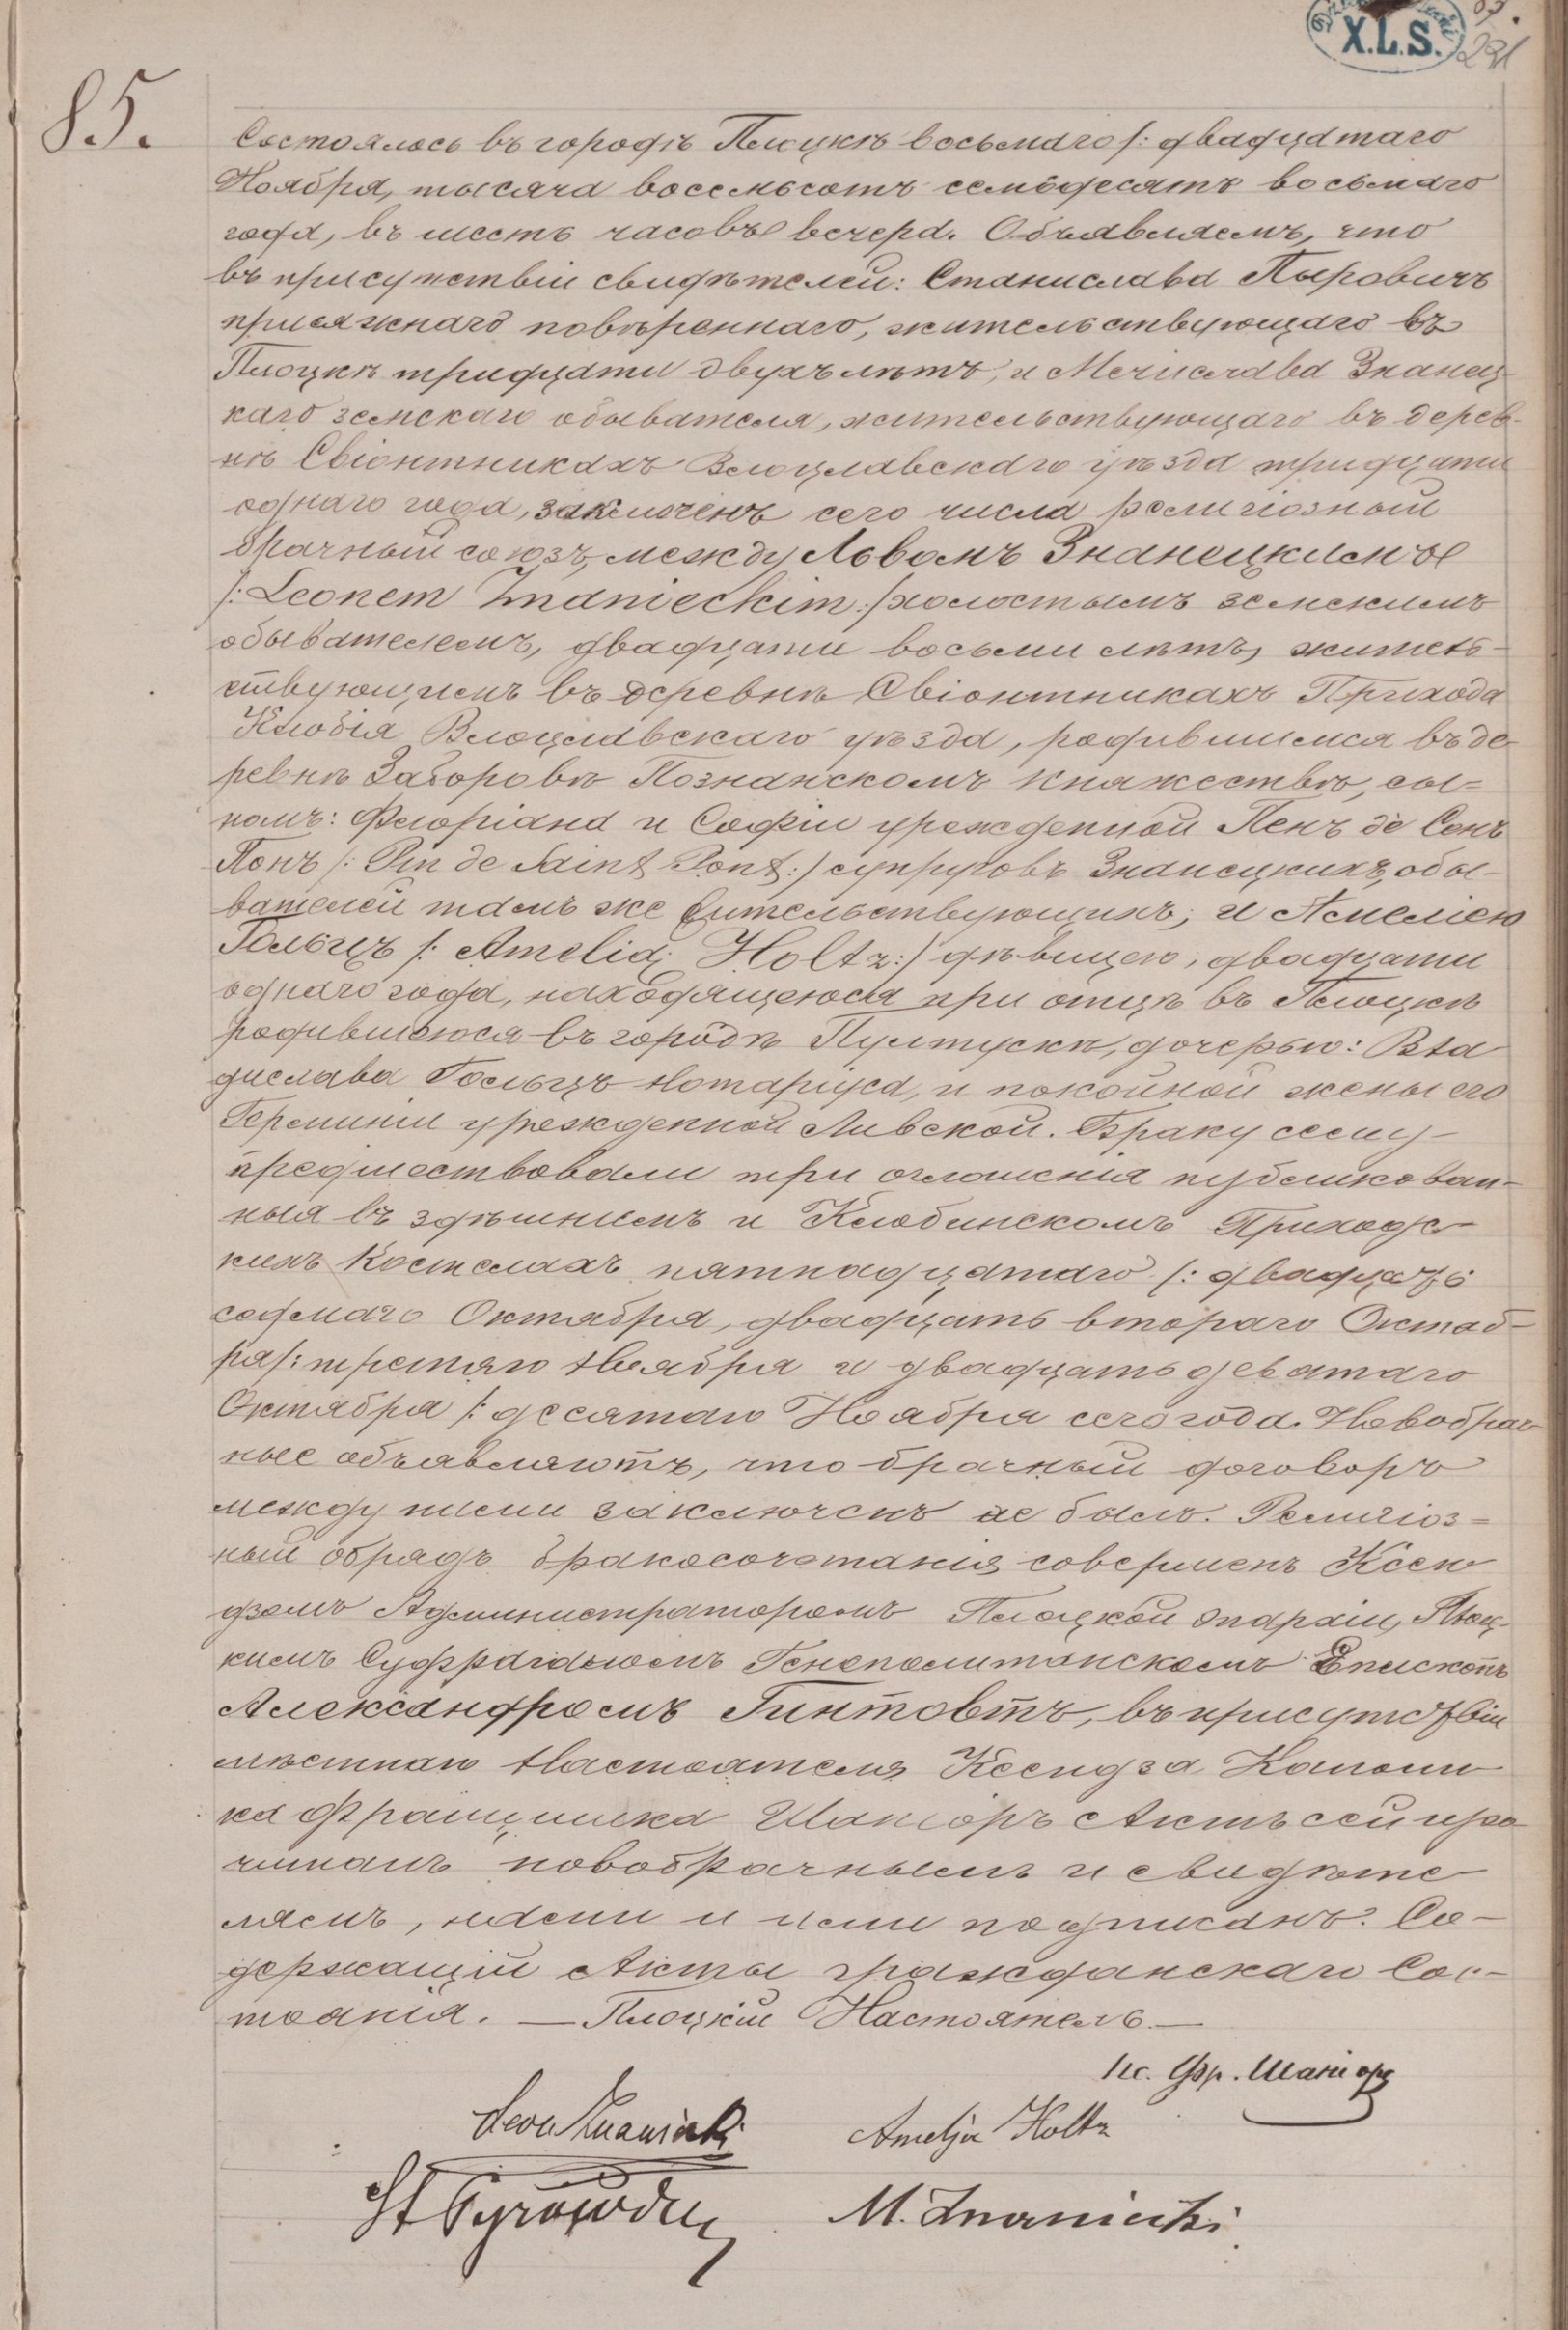 X.L.S.
85.
Состоялось въ городѣ Плоцкѣ восьмаго /: двадцатаго
Ноября, тысяча восемьсотъ семьдесятъ восьмаго
года, въ шесть часовъ вечера. Объявляемъ, что
въ присутствіи свидѣтелей: Станислава Пыровичъ
присяжнаго повѣреннаго, жительствующаго въ
Плоцкѣ тридцати двухъ лѣтъ, и Мечислава Знанец-
каго земскаго обывателя, жительствующаго въ дерев-
нѣ Свіонтникахъ Влоцлавскаго уѣзда тридцати
одного года, заключенъ сего числа религіозный
брачный союзъ, между Львомъ Знанецкимъ
/: Leonem Znanieckim :/ холостымъ земскимъ
обывателемъ, двадцати восьми лѣтъ, житель-
ствующимъ въ деревнѣ Свіонтникахъ Прихода
Клобія Влоцлавскаго уѣзда, родившимся въ де-
ревнѣ Загоровѣ Познанскомъ Княжествѣ, сы=
номъ: Флоріана и Софіи урежденной Пенъ де Сенъ
Понъ /: Pin de Saint Pont :/ супруговъ Знанецкихъ, обы-
вателей тамъ же жительствующихъ; и Амеліею
Гольцъ /: Amelią Holtz :/ дѣвицею, двадцати
одного года, находящеюся при отцѣ въ Плоцкѣ
родившеюся въ городѣ Пултускѣ, дочерью: Вла
дислава Гольцъ Нотаріуса, и покойной жены его
Герминіи урежденной Ливской. Браку сему
предшествовали три оглашенія публикован-
ныя въ здѣшнемъ и Клобинскомъ Приход
кихъ Костелахъ пятнадцатаго /: двадцать
седмаго Октября, двадцать втораго Октяб-
ря /: третяго Ноября и двадцать девятаго
Октября /: десятаго Ноября сего года. Новобрач
ные объявляютъ, что брачный договоръ
между ними заключенъ не былъ. Религіоз=
ный обрядъ бракосочетанія совершенъ Ксен
дзомъ Администраторомъ Плоцкой Эпархіи, Плоц-
кимъ Суффраганомъ Генополитанскомъ Епископъ
Александромъ Гинтовтъ, въ присутствіи
мѣстнаго Настоятеля Ксендза Канони
ка Францишка Шаніоръ Актъ сей про
читанъ новобрачнымъ и свидѣте
лямъ, нами и ими подписанъ. Со-
держащій Акты гражданскаго Сос-
тоянія. — Плоцкій Настоятель —
Кс. Фр. Шаніоръ
Leon Znaniecki Amelja Holtz
St Pyrowicz M. Znaniecki